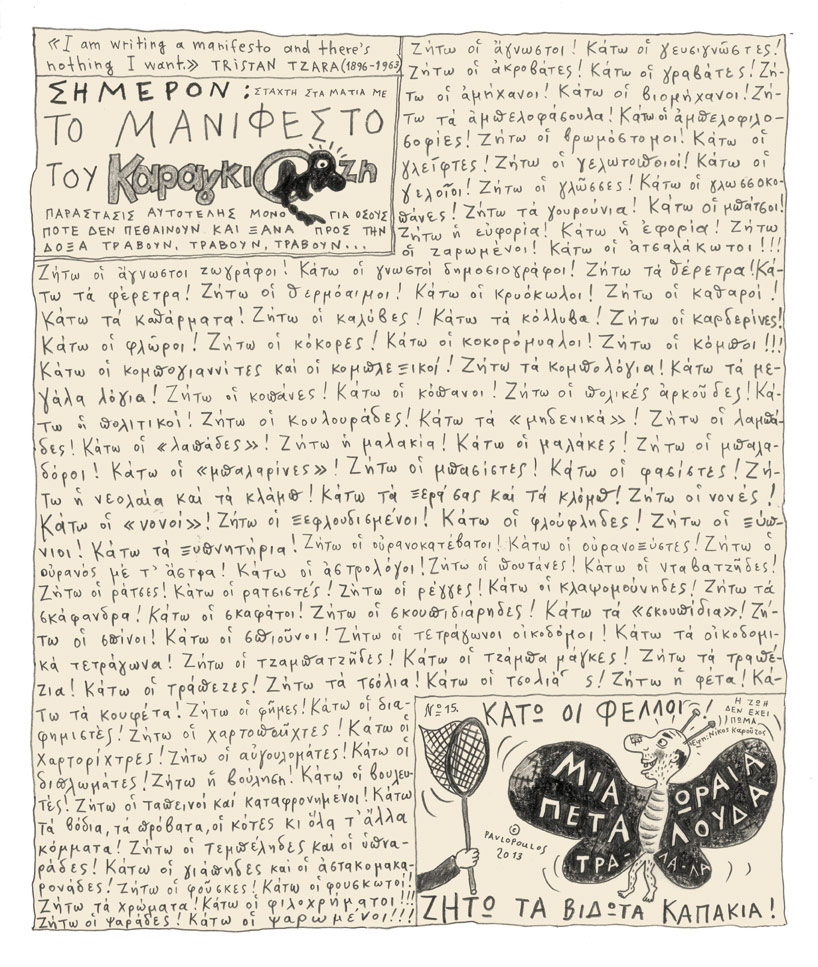 «I am writing a manifesto and there's
nothing I want.» TRISTAN TZARA (1896-1963
ΣΗΜΕΡΟΝ : ΣΤΑΧΤΗ ΣΤΑ ΜΑΤΙΑ ΜΕ
ΤΟ ΜΑΝΙΦΕΣΤΟ
ΤΟΥ Καραγκιόζη
ΠΑΡΑΣΤΑΣΙΣ ΑΥΤΟΤΕΛΗΣ ΜΟΝΟ ΓΙΑ ΟΣΟΥΣ
ΠΟΤΕ ΔΕΝ ΠΕΘΑΙΝΟΥΝ ΚΑΙ ΞΑΝΑ ΠΡΟΣ ΤΗΝ
ΔΟΞΑ ΤΡΑΒΟΥΝ, ΤΡΑΒΟΥΝ, ΤΡΑΒΟΥΝ...
Ζήτω οἱ ἄγνωστοι! Κάτω οἱ γευσιγνῶστες!
Ζήτω οἱ ἀκροβάτες! Κάτω οἱ γραβάτες! Ζή-
τω οἱ ἀμήχανοι! Κάτω οἱ βιομήχανοι! Ζή-
τω τά ἀμπελοφάσουλα! Κάτω οἱ ἀμπελοφιλο-
σοφίες! Ζήτω οἱ βρωμόστομοι! Κάτω οἱ
γλεῖφτες! Ζήτω οἱ γελωτοποιοί! Κάτω οἱ
γελοῖοι! Ζήτω οἱ γλῶσσες! Κάτω οἱ γλωσσοκο-
πάνες! Ζήτω τά γουρούνια! Κάτω οἱ μπάτσοι!
Ζήτω ἡ εὐφορία! Κάτω ἡ ἐφορία! Ζήτω
οἱ ζαρωμένοι! Κάτω οἱ ἀτσαλάκωτοι!!!
Ζήτω οἱ ἄγνωστοι ζωγράφοι! Κάτω οἱ γνωστοί δημοσιογράφοι! Ζήτω τά θέρετρα! Κά-
τω τά φέρετρα! Ζήτω οἱ θερμόαιμοι! Κάτω οἱ κρυόκωλοι! Ζήτω οἱ καθαροί!
Κάτω τά καθάρματα! Ζήτω οἱ καλύβες! Κάτω τά κόλλυβα! Ζήτω οἱ καρδερίνες!
Κάτω οἱ φλῶροι! Ζήτω οἱ κόκορες! Κάτω οἱ κοκορόμυαλοι! Ζήτω οἱ κόμποι!!!
Κάτω οἱ κομπογιαννίτες καί οἱ κομπλεξικοί! Ζήτω τά κομπολόγια! Κάτω τά με-
γάλα λόγια! Ζήτω οἱ κοπάνες! Κάτω οἱ κόπανοι! Ζήτω οἱ πολικές ἀρκοῦδες! Κά-
τω ἡ πολιτικοί! Ζήτω οἱ Κουλουράδες! Κάτω τά «μηδενικά»! Ζήτω οἱ λαμπά-
δες! Κάτω οἱ «λαπάδες»! Ζήτω ἡ μαλακία! Κάτω οἱ μαλάκες! Ζήτω οἱ μπαλα-
δόροι! Κάτω οἱ «μπαλαρίνες»! Ζήτω οἱ μπασίστες! Κάτω οἱ φασίστες! Ζή-
τω ἡ νεολαία καί τά κλάμπ! Κάτω τά ξερά σας καί τά κλόμπ! Ζήτω οἱ νονές!
Κάτω οἱ «νονοί»! Ζήτω οἱ ξεφλουδισμένοι! Κάτω οἱ φλούφληδες! Ζήτω οἱ ξύπ-
νιοι! Κάτω τά ξυπνητήρια! Ζήτω οἱ οὐρανοκατέβατοι! Κάτω οἱ οὐρανοξύστες! Ζήτω ὁ
οὐρανός μέ τ' ἄστρα! Κάτω οἱ ἀστρολόγοι! Ζήτω οἱ πουτάνες! Κάτω οἱ νταβατζῆδες!
Ζήτω οἱ ράτσες! Κάτω οἱ ρατσιστές! Ζήτω οἱ ρέγγες! Κάτω οἱ κλαψομούνηδες! Ζήτω τά
σκάφανδρα! Κάτω οἱ σκαφάτοι! Ζήτω οἱ σκουπιδιάρηδες! Κάτω τά «σκουπίδια»! Ζή-
τω οἱ σπίνοι! Κάτω οἱ σπιοῦνοι! Ζήτω οἱ τετράγωνοι οἰκοδόμοι! Κάτω τά οἰκοδομι-
κά τετράγωνα! Ζήτω οἱ τζαμπατζῆδες! Κάτω οἱ τζάμπα μάγκες! Ζήτω τά τραπέ-
ζια! Κάτω οἱ τράπεζες! Ζήτω τά τσόλια! Κάτω οἱ τσολιάδες! Ζήτω ἡ φέτα! Κά-
τω τά κουφέτα! Ζήτω οἱ φῆμες! Κάτω οἱ δια-
φημιστές! Ζήτω οἱ χαρτοπαῖχτες! Κάτω οἱ
χαρτορίχτρες! Ζήτω οἱ αὐγουλομάτες! Κάτω οἱ
διπλωμάτες! Ζήτω ἡ βούληση! Κάτω οἱ βουλευ-
τές! Ζήτω οἱ ταπεινοί καί καταφρονημένοι! Κάτω
τά βόδια, τά πρόβατα, οἱ κότες κι ὅλα τ' ἄλλα
κόμματα! Ζήτω οἱ τεμπέληδες καί οἱ ὑπνα-
ράδες! Κάτω οἱ γιάπηδες καί οἱ ἀστακομακα-
ρονάδες! Ζήτω οἱ φοῦσκες! Κάτω οἱ φουσκωτοί!
Ζήτω τά χρώματα! Κάτω οἱ φιλοχρήματοι!!!
Ζήτω οἱ ψαράδες! Κάτω οἱ ψαρωμένοι!!!
Νο 15.
ΚΑΤΩ ΟΙ ΦΕΛΛΟΙ!
Η ΖΩΗ
ΔΕΝ ΕΧΕΙ
ΠΩΜΑ
Εμπ: Νίκος Καρούζος
ΜΙΑ ΩΡΑΙΑ
ΠΕΤΑΛΟΥΔΑ
ΤΡΑ-ΛΑ-ΛΑ
© PAVLOPOULOS
2013
ΖΗΤΩ ΤΑ ΒΙΔΩΤΑ ΚΑΠΑΚΙΑ!